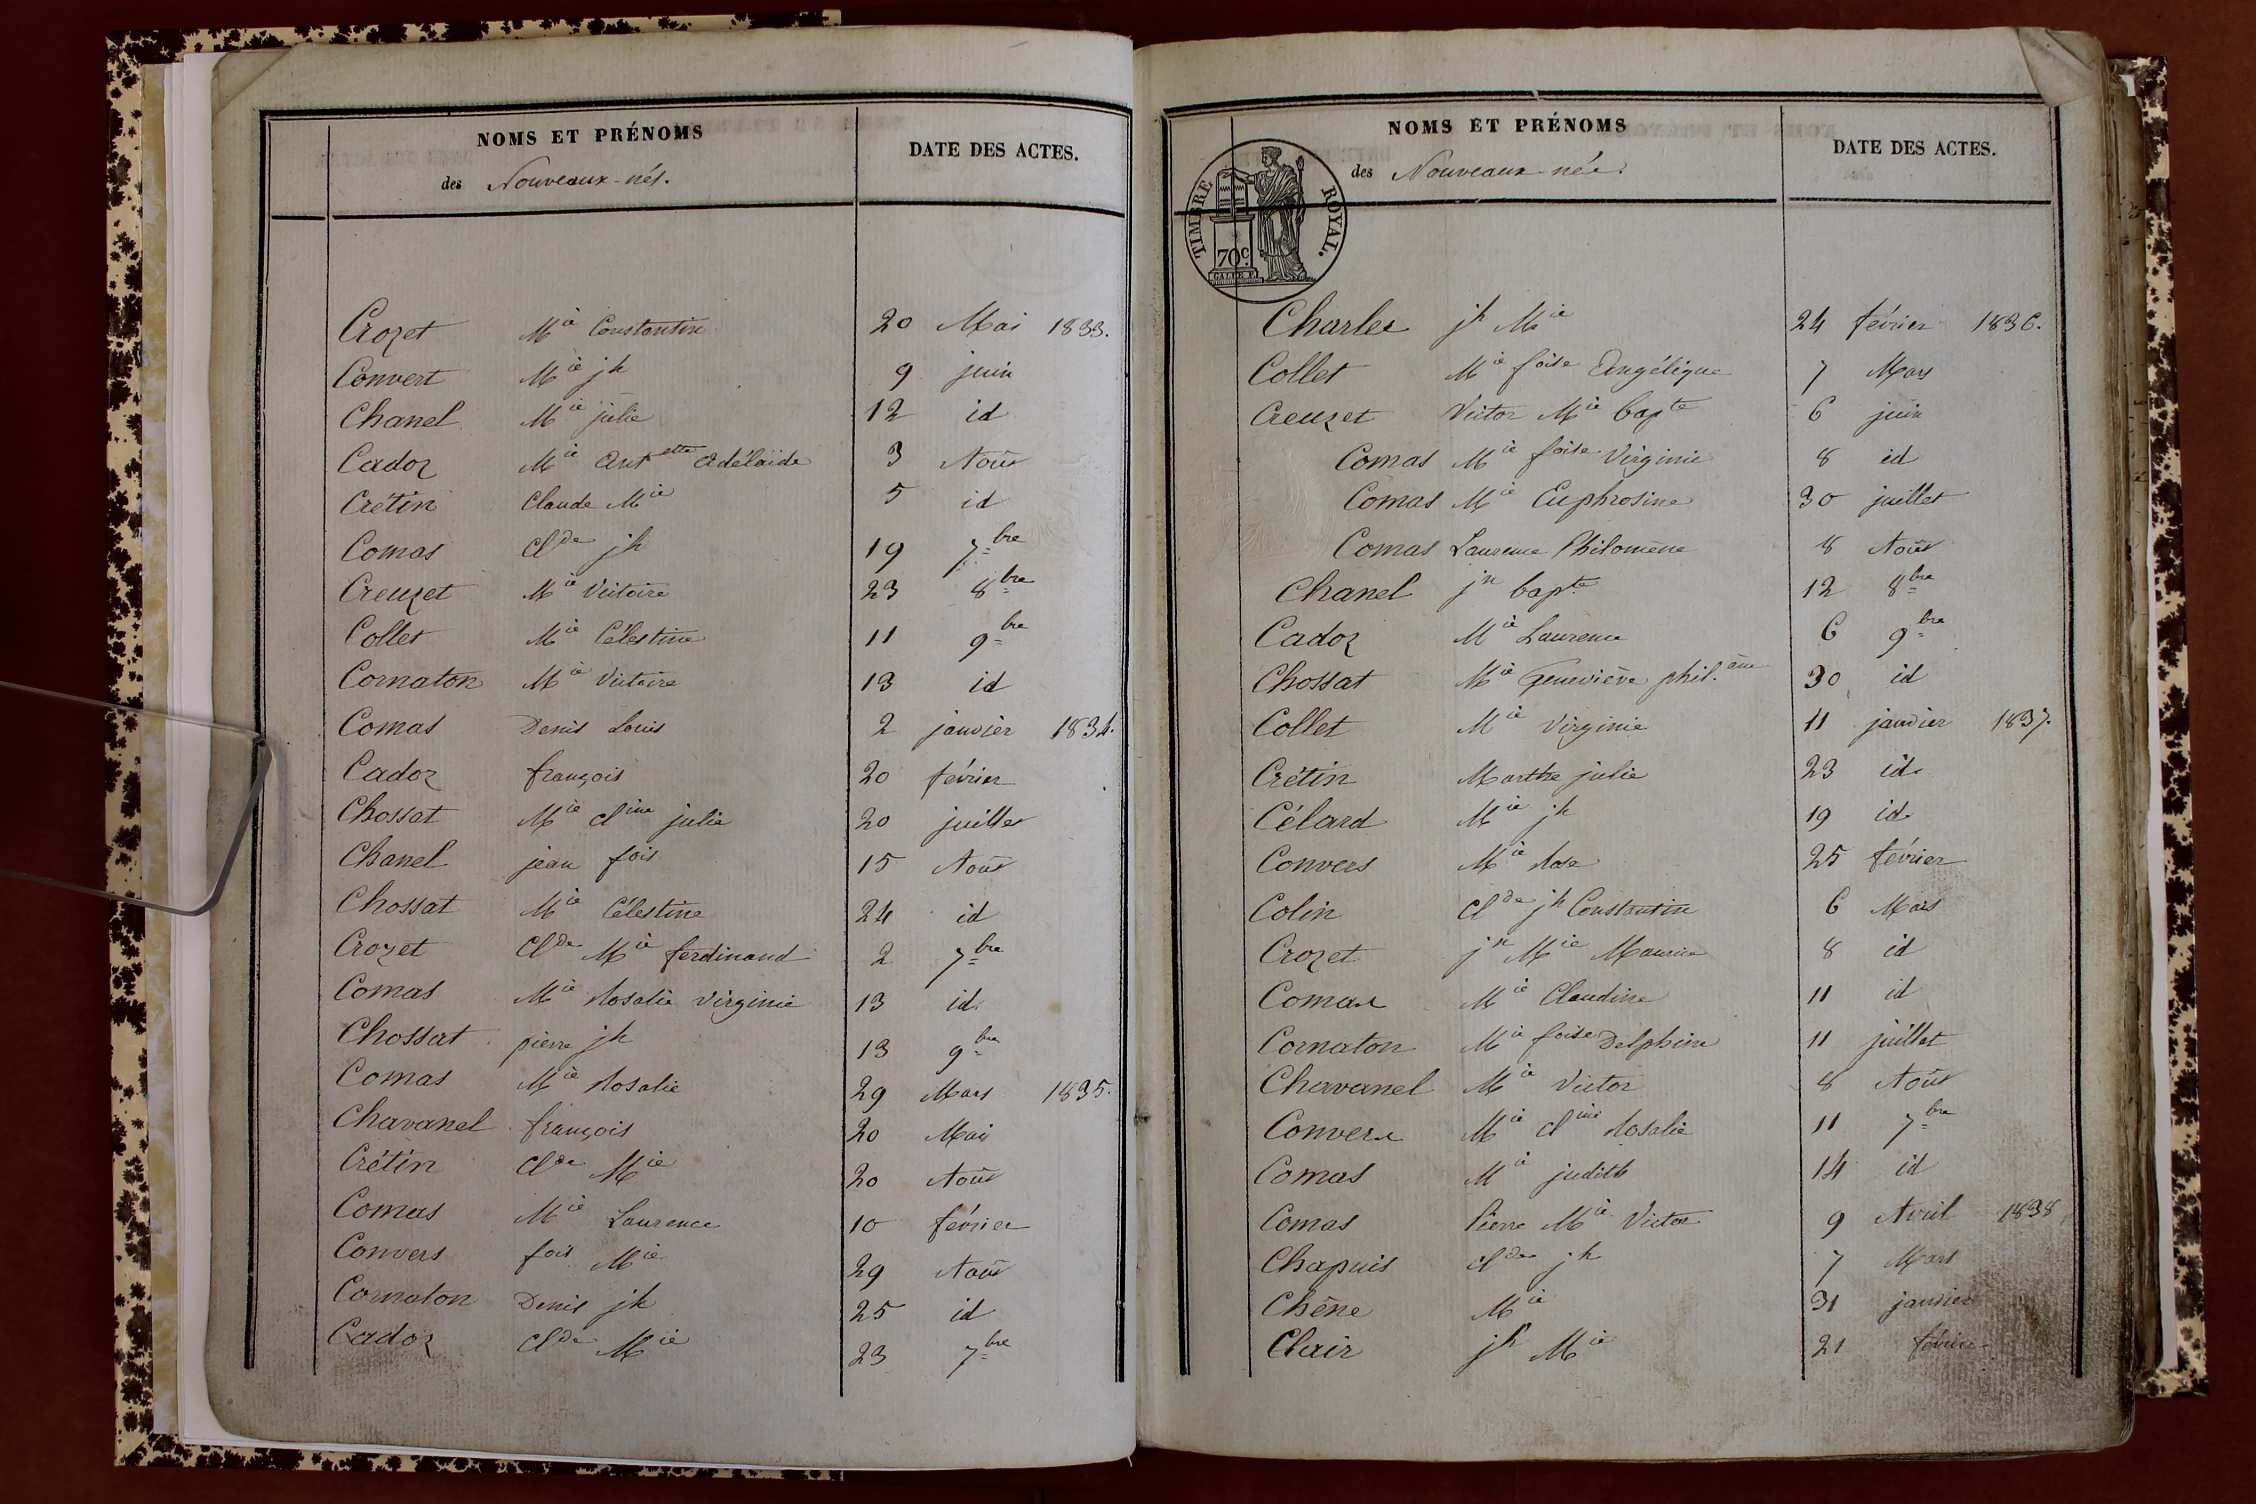 NOMS ET PRÉNOMS
des Nouveaux-nés.
DATE DES ACTES.
Crozet Mie Constantin 20 Mai 1833.
Convert Mie jh 9 juin
Chanel Mie julie 12 id
Cadoz Mie Antette Adélaïde 3 Août
Crétin Claude Mie 5 id
Comas Clde jh 19 7bre
Creuzet Mie Victoire 23 8bre
Collet Mie Célestine 11 9bre
Cornaton Mie Victoire 13 id
Comas Denis Louis 2 janvier 1834.
Cadoz françois 20 février
Chossat Mie Cline julie 20 juillet
Chanel jean fois 15 Août
Chossat Mie Célestine 24 id
Crozet Clde Mie ferdinand 2 7bre
Comas Mie Rosalie Virginie 13 id.
Chossat pierre jh 13 9bre
Comas Mie Rosalie 29 Mars 1835.
Chavanel françois 20 Mai
Crétin Clde Mie 20 Août
Comas Mie Laurence 10 février
Convers fois Mie 29 Août
Cornaton Denis jh 25 id
Cadoz Clde Mie 23 7bre
NOMS ET PRÉNOMS
des Nouveaux-nés.
DATE DES ACTES.
TIMBRE ROYAL.
70c.
Charles jh Mie 24 février 1836.
Collet Mie foise Angélique 7 Mars
Creuzet Victor Mie bapte 6 juin
Comas Mie foise Virginie 8 id
Comas Mie Euphrosine 30 juillet
Comas Laurence Philomène 8 Août
Chanel jn bapte 12 8bre
Cadoz Mie Laurence 6 9bre
Chossat Mie Geneviève phil.ène 30 id
Collet Mie Virginie 11 janvier 1837.
Crétin Marthe julie 23 id.
Célard Mie jh 19 id.
Convers Mie Rose 25 février
Colin Clde jh Constantin 6 Mars
Crozet jn Mie Maurice 8 id
Comas Mie Claudine 11 id
Cornaton Mie foise Delphine 11 juillet
Chavanel Mie Victor 8 Août
Convers Mie Cline Rosalie 11 7bre
Comas Mie judith 14 id
Comas Pierre Mie Victor 9 Avril 1838
Chapuis Clde jh 7 Mars
Chêne Mie 31 janvier
Clair jh Mie 21 février